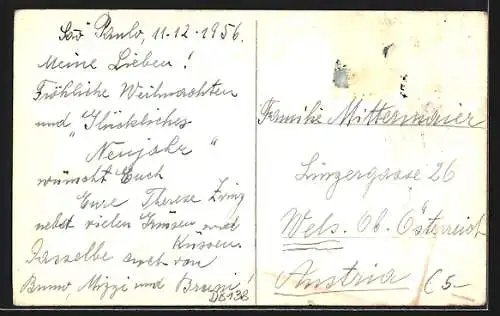 São Paulo, 11-12-1956.
Meine Lieben!
Fröhliche Weihnachten
und "Glückliches
Neujahr"
wünscht Euch
Eure Therese
nebst vielen Grüsen und
Küssen.
Dasselbe auch von
Bruno, Mizzi und
DB138
Familie Mittermaier
Linzergasse 26
Wels. Ob. Österreich
Austria